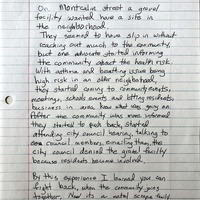 On Montcalm street a gravel
facility wanted have a site in
the neighborhood.
They seemed to have slip in without
reaching out much to the community,
but one advocate started informing
the community about the health risk.
With asthma and breathing issue being
high risk in an older neighborhood,
they started coming to community events,
meetings, schools events and letting residents,
business in area know what was going on.
After the community was more informed
they started to push back, started
attending city council hearing, talking to
council members, emailing them, the
city council denied the gravel facility
because residents became involved.
By this experience I learned you can
fight back, when the community joins
together. Now its a metal scrape facility